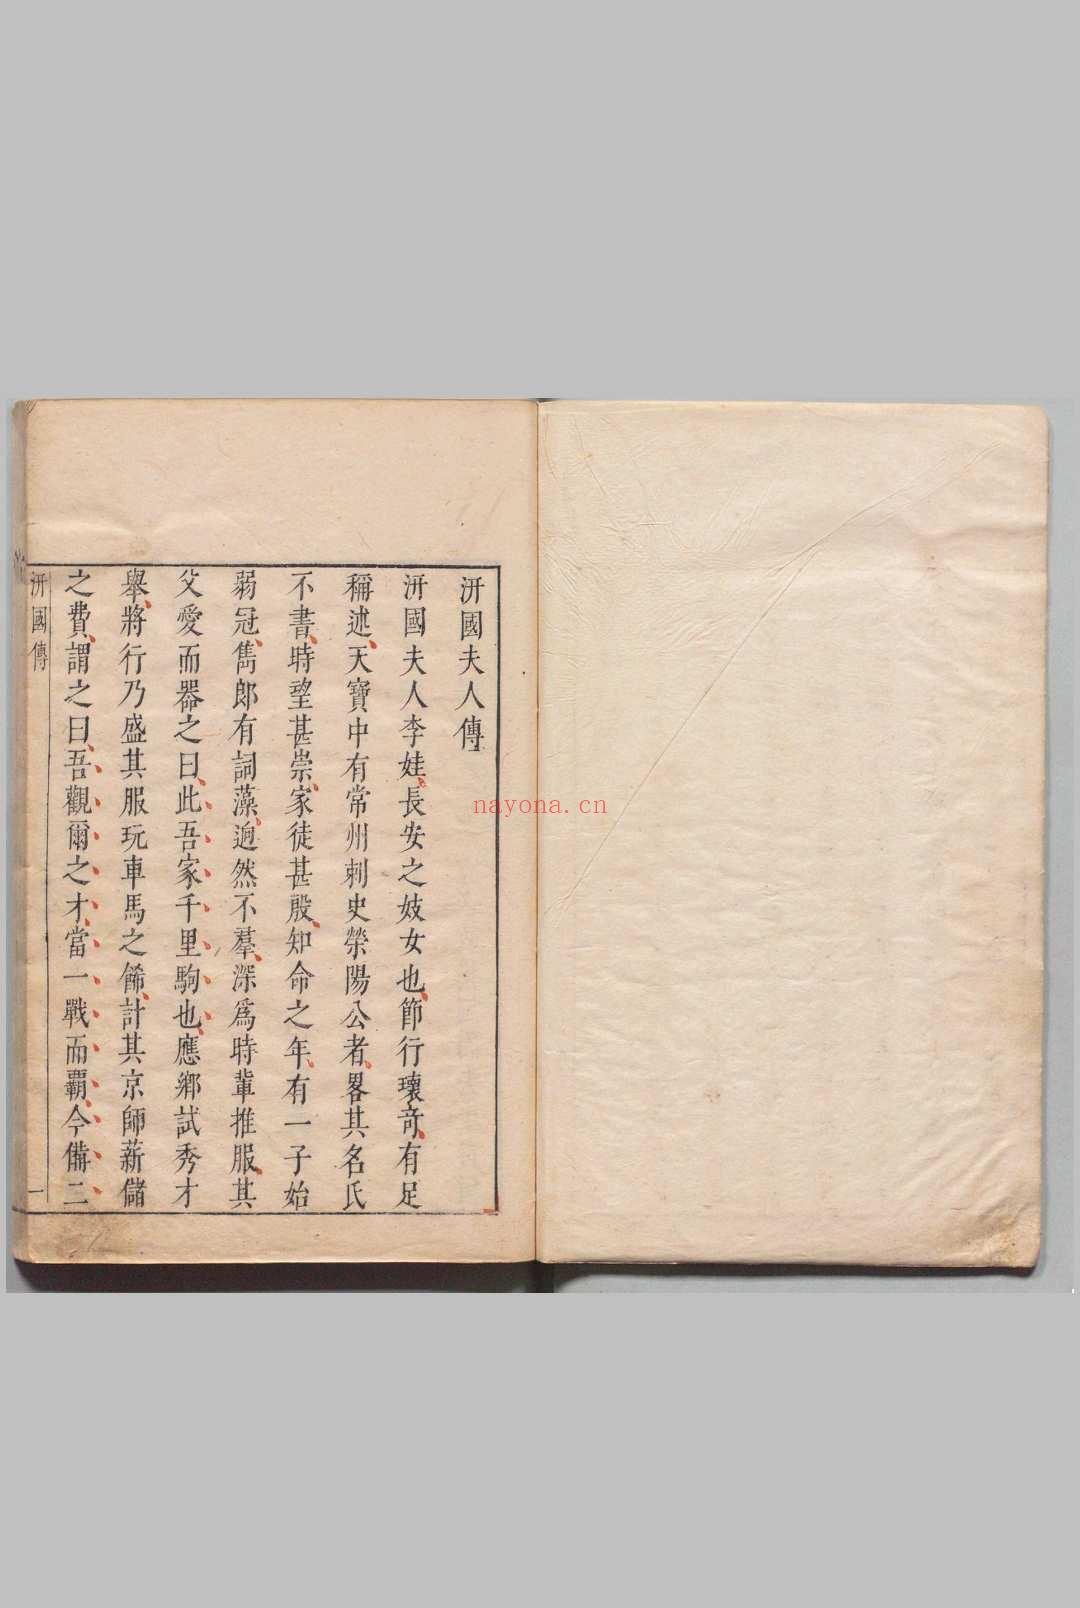 汧國夫人傳
汧國夫人李娃長安之妓女也節行瓌奇有足
稱述天寶中有常州刺史滎陽公者畧其名氏
不書時望甚崇家徒甚殷知命之年有一子始
弱冠雋郎有詞藻逈然不羣深爲時輩推服其
父愛而器之曰此吾家千里駒也應鄉試秀才
舉將行乃盛其服玩車馬之餙計其京師薪儲
之費謂之曰吾觀爾之才當一戰而覇今備二
汧國傳
一
nayona.cn